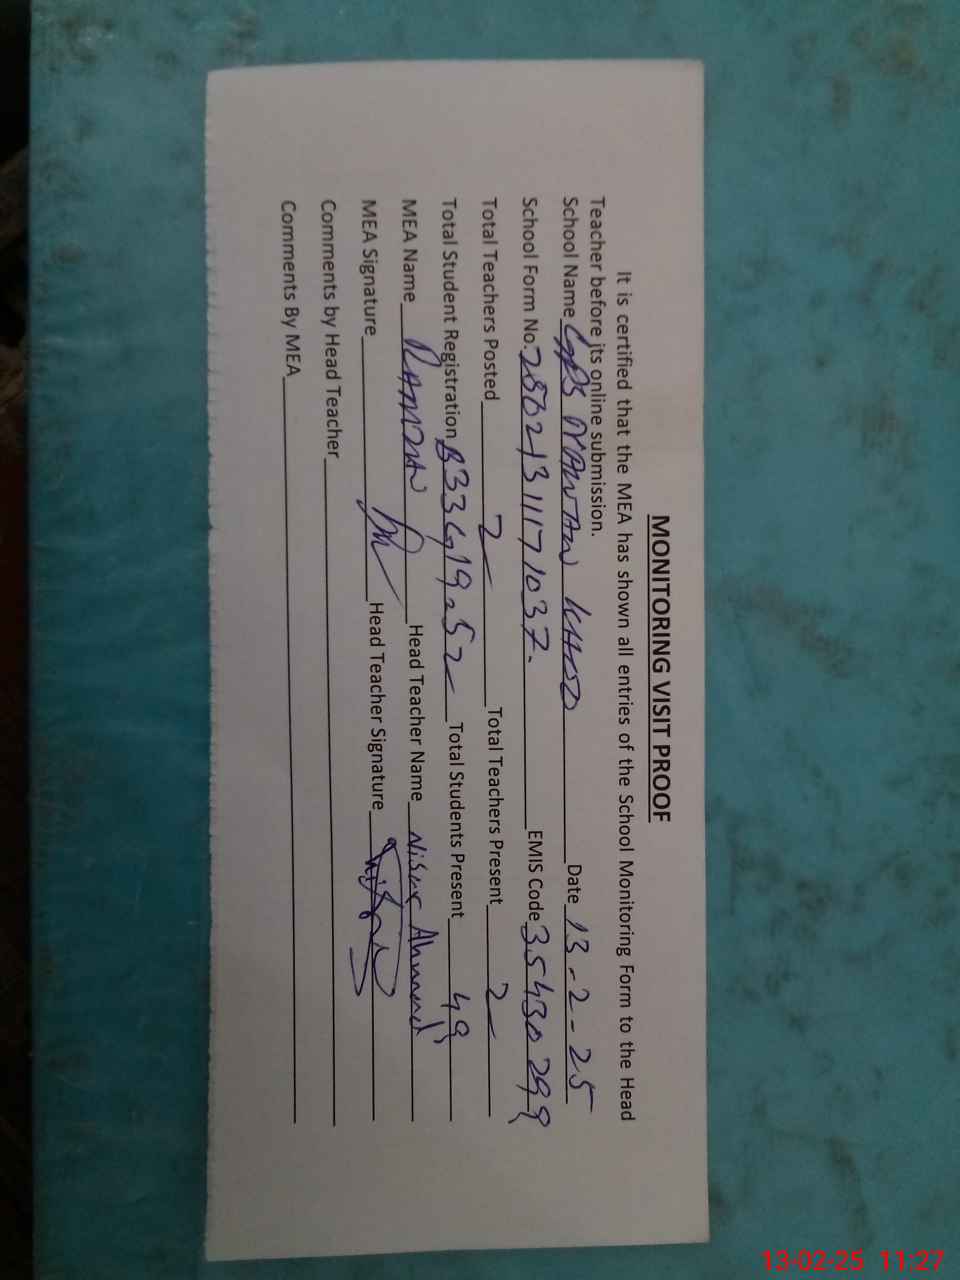 MONITORING VISIT PROOF
It is certified that the MEA has shown all entries of the School Monitoring Form to the Head
Teacher before its online submission.
School Name GPS Date 13-2-25
School Form No. 28021311171037. EMIS Code 35430299
Total Teachers Posted 2 Total Teachers Present 2
Total Student Registration B33G19=52 Total Students Present 49
MEA Name RAMZAN Head Teacher Name Nisar Ahmed
MEA Signature Head Teacher Signature
Comments by Head Teacher
Comments By MEA
13-02-25 11:27